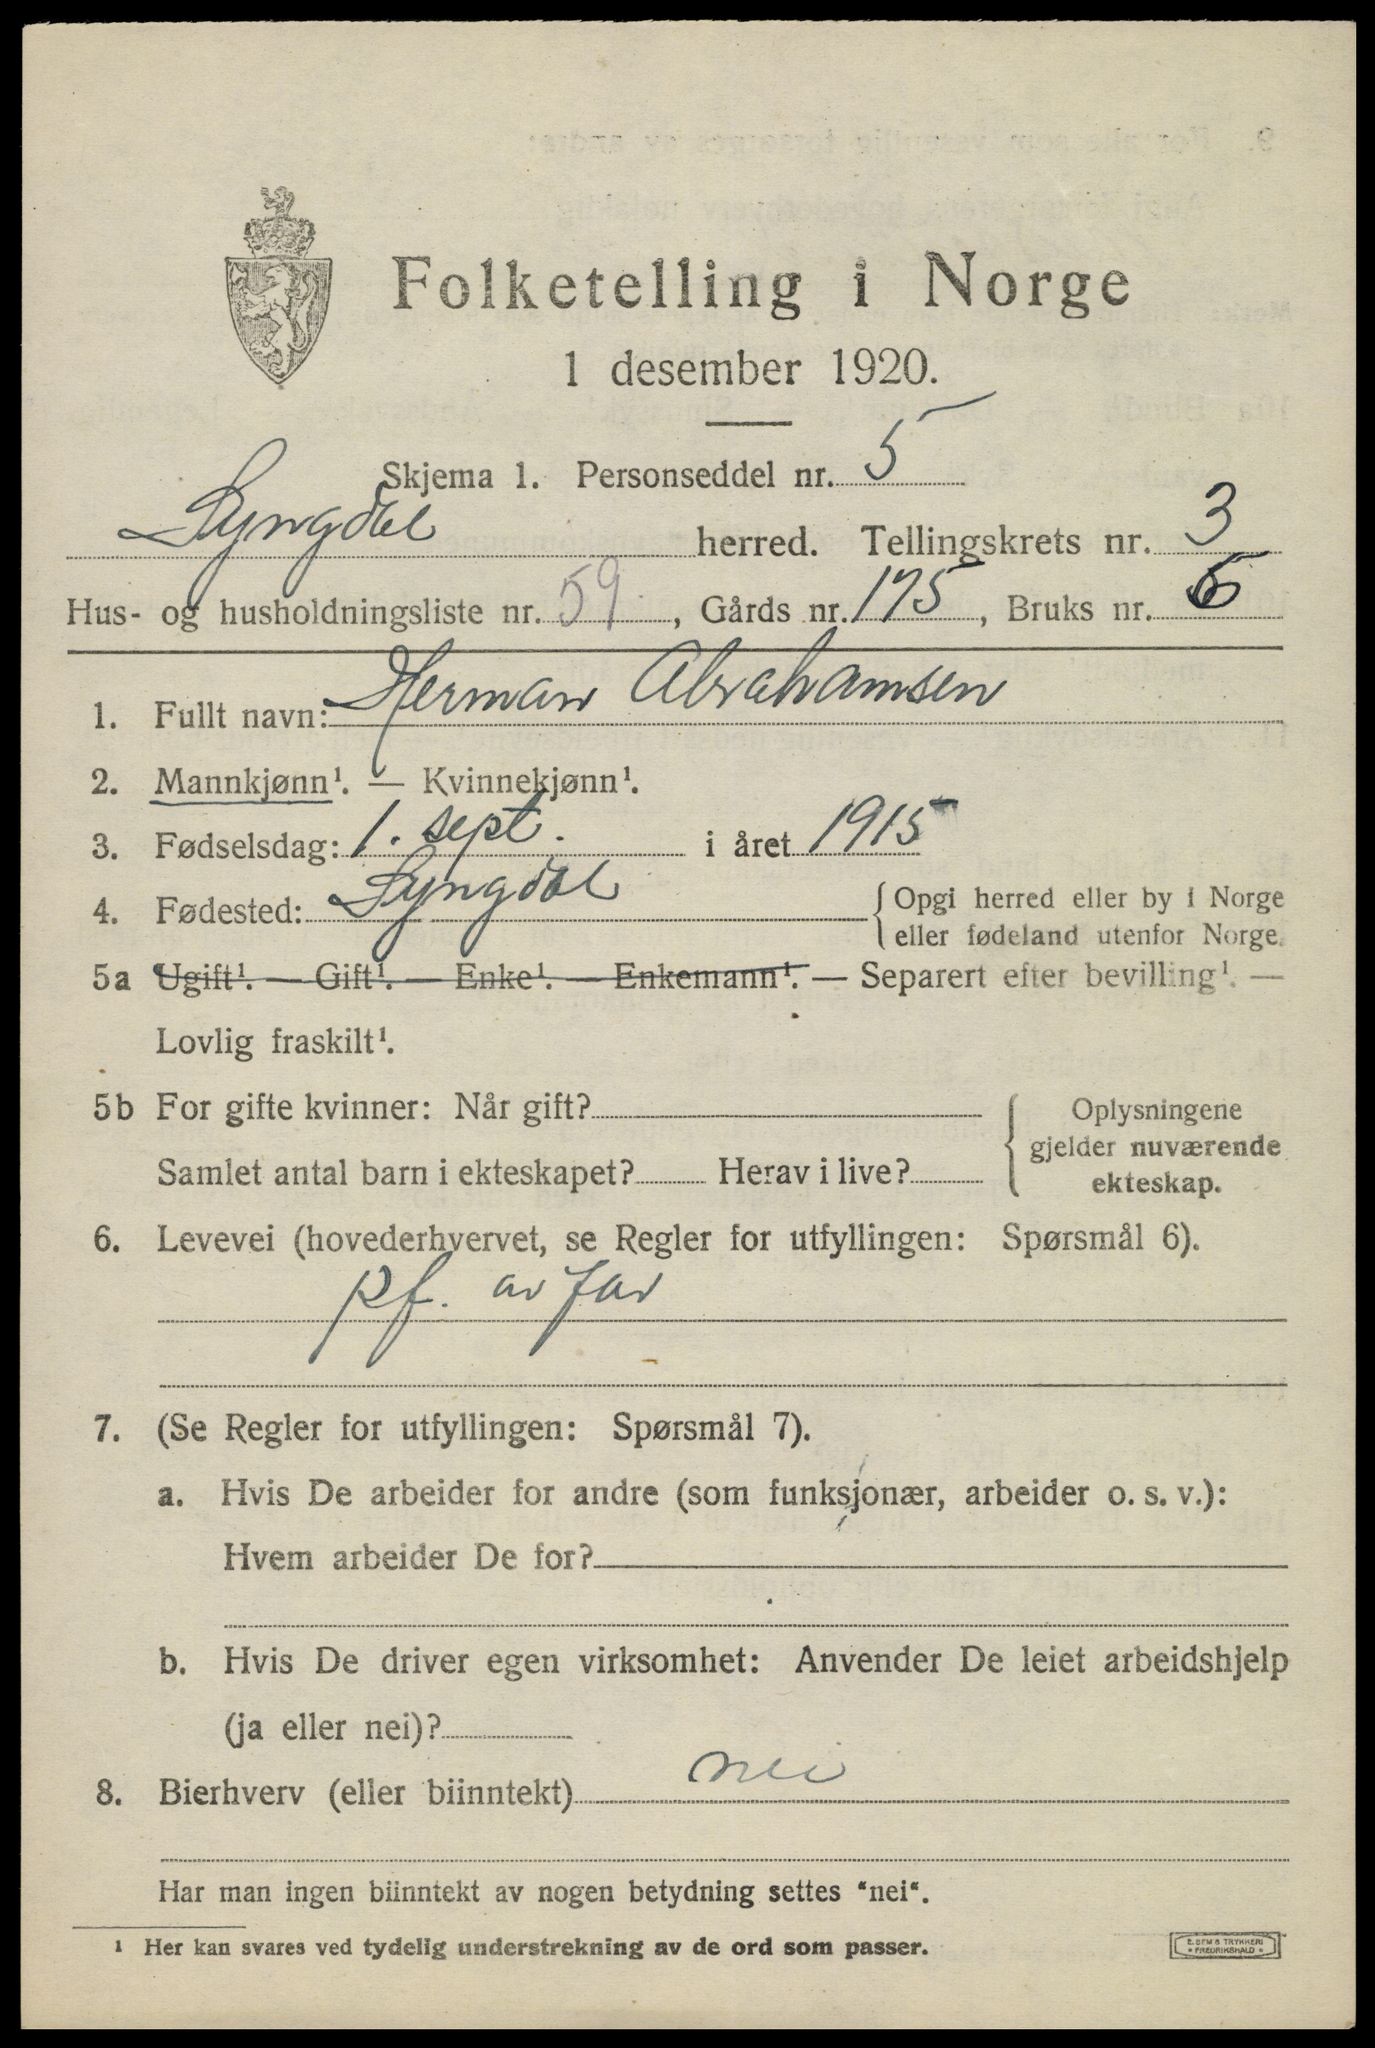 Folketelling i Norge
1 desember 1920.
Skjema 1. Personseddel nr. 5
Lyngdal herred. Tellingskrets nr. 3
Hus- og husholdningsliste nr. 59, Gårds nr. 175, Bruks nr. 6
1. Fullt navn: Herman Abrahamsen
2. Mannkjønn¹. — Kvinnekjønn¹.
3. Fødselsdag: 1. sept. i året 1915
4. Fødested: Lyngdal {Opgi herred eller by i Norge
eller fødeland utenfor Norge.
5a Ugift¹. — Gift¹. — Enke¹. — Enkemann¹. — Separert efter bevilling¹. —
Lovlig fraskilt¹.
5b For gifte kvinner: Når gift?
Samlet antal barn i ekteskapet? Herav i live?
Oplysningene
gjelder nuværende
ekteskap.
6. Levevei (hovederhvervet, se Regler for utfyllingen: Spørsmål 6).
pf. av far
7. (Se Regler for utfyllingen: Spørsmål 7).
a. Hvis De arbeider for andre (som funksjonær, arbeider o. s. v.):
Hvem arbeider De for?
b. Hvis De driver egen virksomhet: Anvender De leiet arbeidshjelp
(ja eller nei)?
8. Bierhverv (eller biinntekt) nei
Har man ingen biinntekt av nogen betydning settes "nei".
¹ Her kan svares ved tydelig understrekning av de ord som passer.
E. SEM'S TRYKKERI
• FREDRIKSHALD •